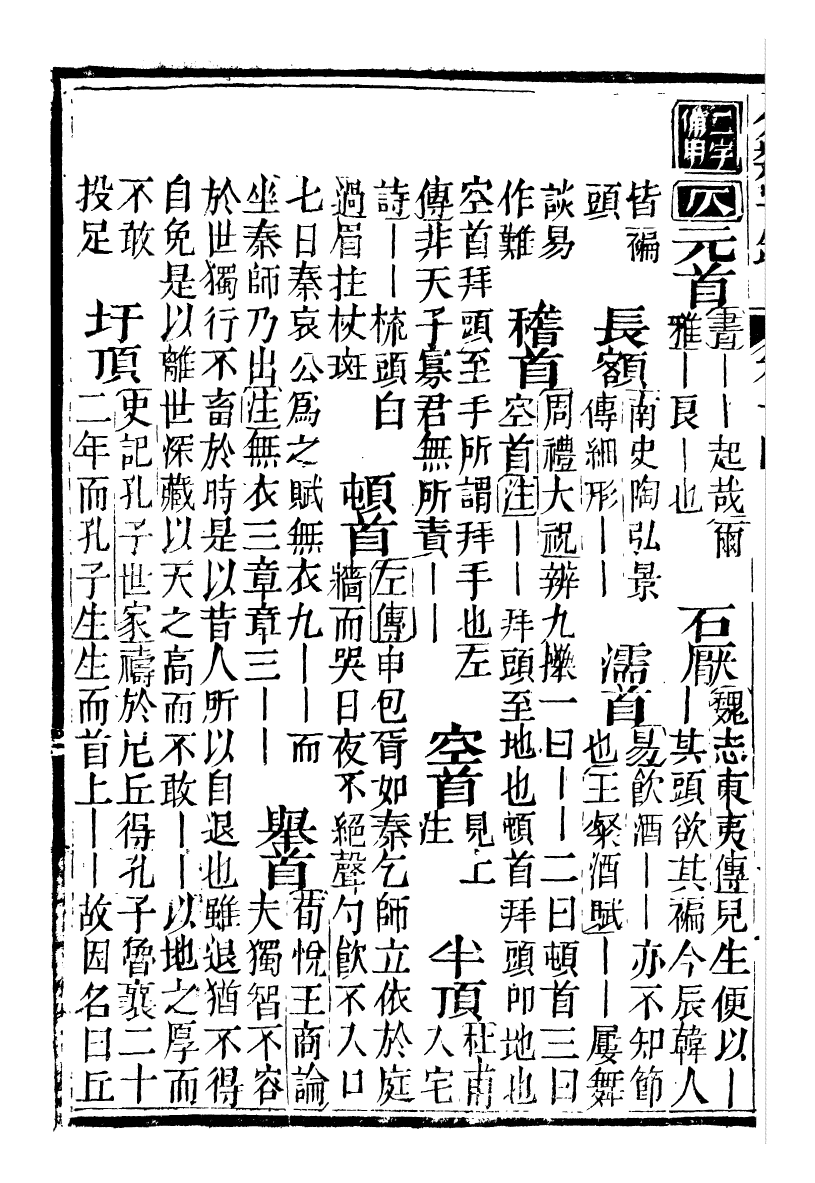 二字備用
仄
元首
書——起哉爾
雅—良—也
石厭
魏志東夷傳兒生便以—
—其頭欲其褊今辰韓人
皆褊
頭
長額
南史陶弘景
傳細形——
濡首
易飲酒——亦不知節
也王粲酒賦——屢舞
談易
作難
稽首
周禮大祝辨九𢷎一曰——二曰頓首三曰
空首注——拜頭至地也頓首拜頭叩地也
空首拜頭至手所謂拜手也左
傳非天子寡君無所責——
空首
見上
注
半頂
杜甫
人宅
詩——梳頭白
過眉拄杖斑
頓首
左傳申包胥如秦乞師立依於庭
牆而哭日夜不絕聲勺飮不入口
七日秦哀公爲之賦無衣九——而
坐秦師乃出注無衣三章章三——
舉首
荀悅王商論
夫獨智不容
於世獨行不畜於時是以昔人所以自退也雖退猶不得
自免是以離世深藏以天之高而不敢——以地之厚而
不敢
投足
圩頂
史記孔子世家禱於尼丘得孔子魯襄二十
二年而孔子生生而首上——故因名曰丘